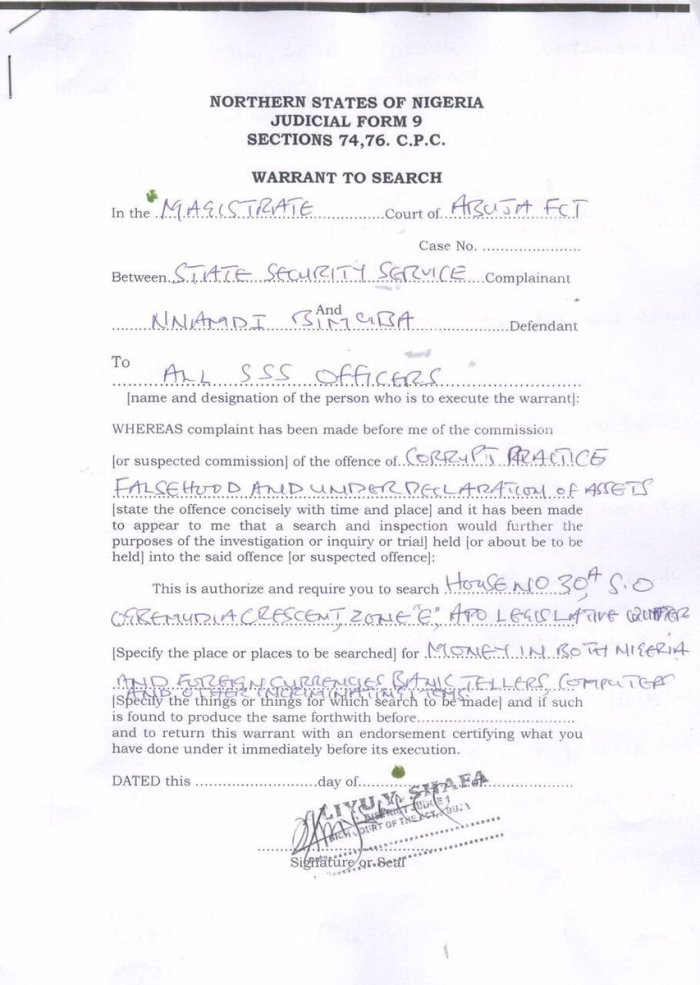 NORTHERN STATES OF NIGERIA
JUDICIAL FORM 9
SECTIONS 74,76. C.P.C.
WARRANT TO SEARCH
In the MAGISTRATE Court of ABUJA FCT
Case No. ........................
Between STATE SECURITY SERVICE Complainant
And
NNAMDI Defendant
To
ALL SSS OFFICERS
[name and designation of the person who is to execute the warrant]:
WHEREAS complaint has been made before me of the commission
[or suspected commission] of the offence of CORRUPT PRACTICE
FALSEHOOD AND UNDER DECLARATION OF ASSETS
[state the offence concisely with time and place] and it has been made
to appear to me that a search and inspection would further the
purposes of the investigation or inquiry or trial] held [or about be to be
held] into the said offence [or suspected offence]:
This is authorize and require you to search HOUSE NO 30A S.O
CRESCENT, ZONE "E", APO LEGISLATIVE
[Specify the place or places to be searched] for MONEY IN BOTH NIGERIA
AND FOREIGN CURRENCIES BANK TELLERS, COMPUTERS
AND OTHER INCRIMINATING ITEMS
[Specify the things or things for which search to be made] and if such
is found to produce the same forthwith before
and to return this warrant with an endorsement certifying what you
have done under it immediately before its execution.
DATED this ........................day of
LIYU Y. SHAFA
DISTRICT JUDGE 1
HIGH COURT OF THE FCT, ABUJA
Signature or Seal